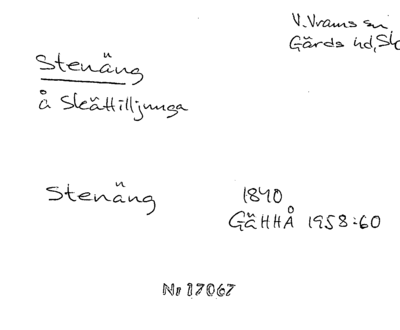 V. Vrams sn
Gärds hd, Sk
Stenäng
å Skättilljunga
Stenäng
1840
GäHHÅ 1958:60
Nr 17067